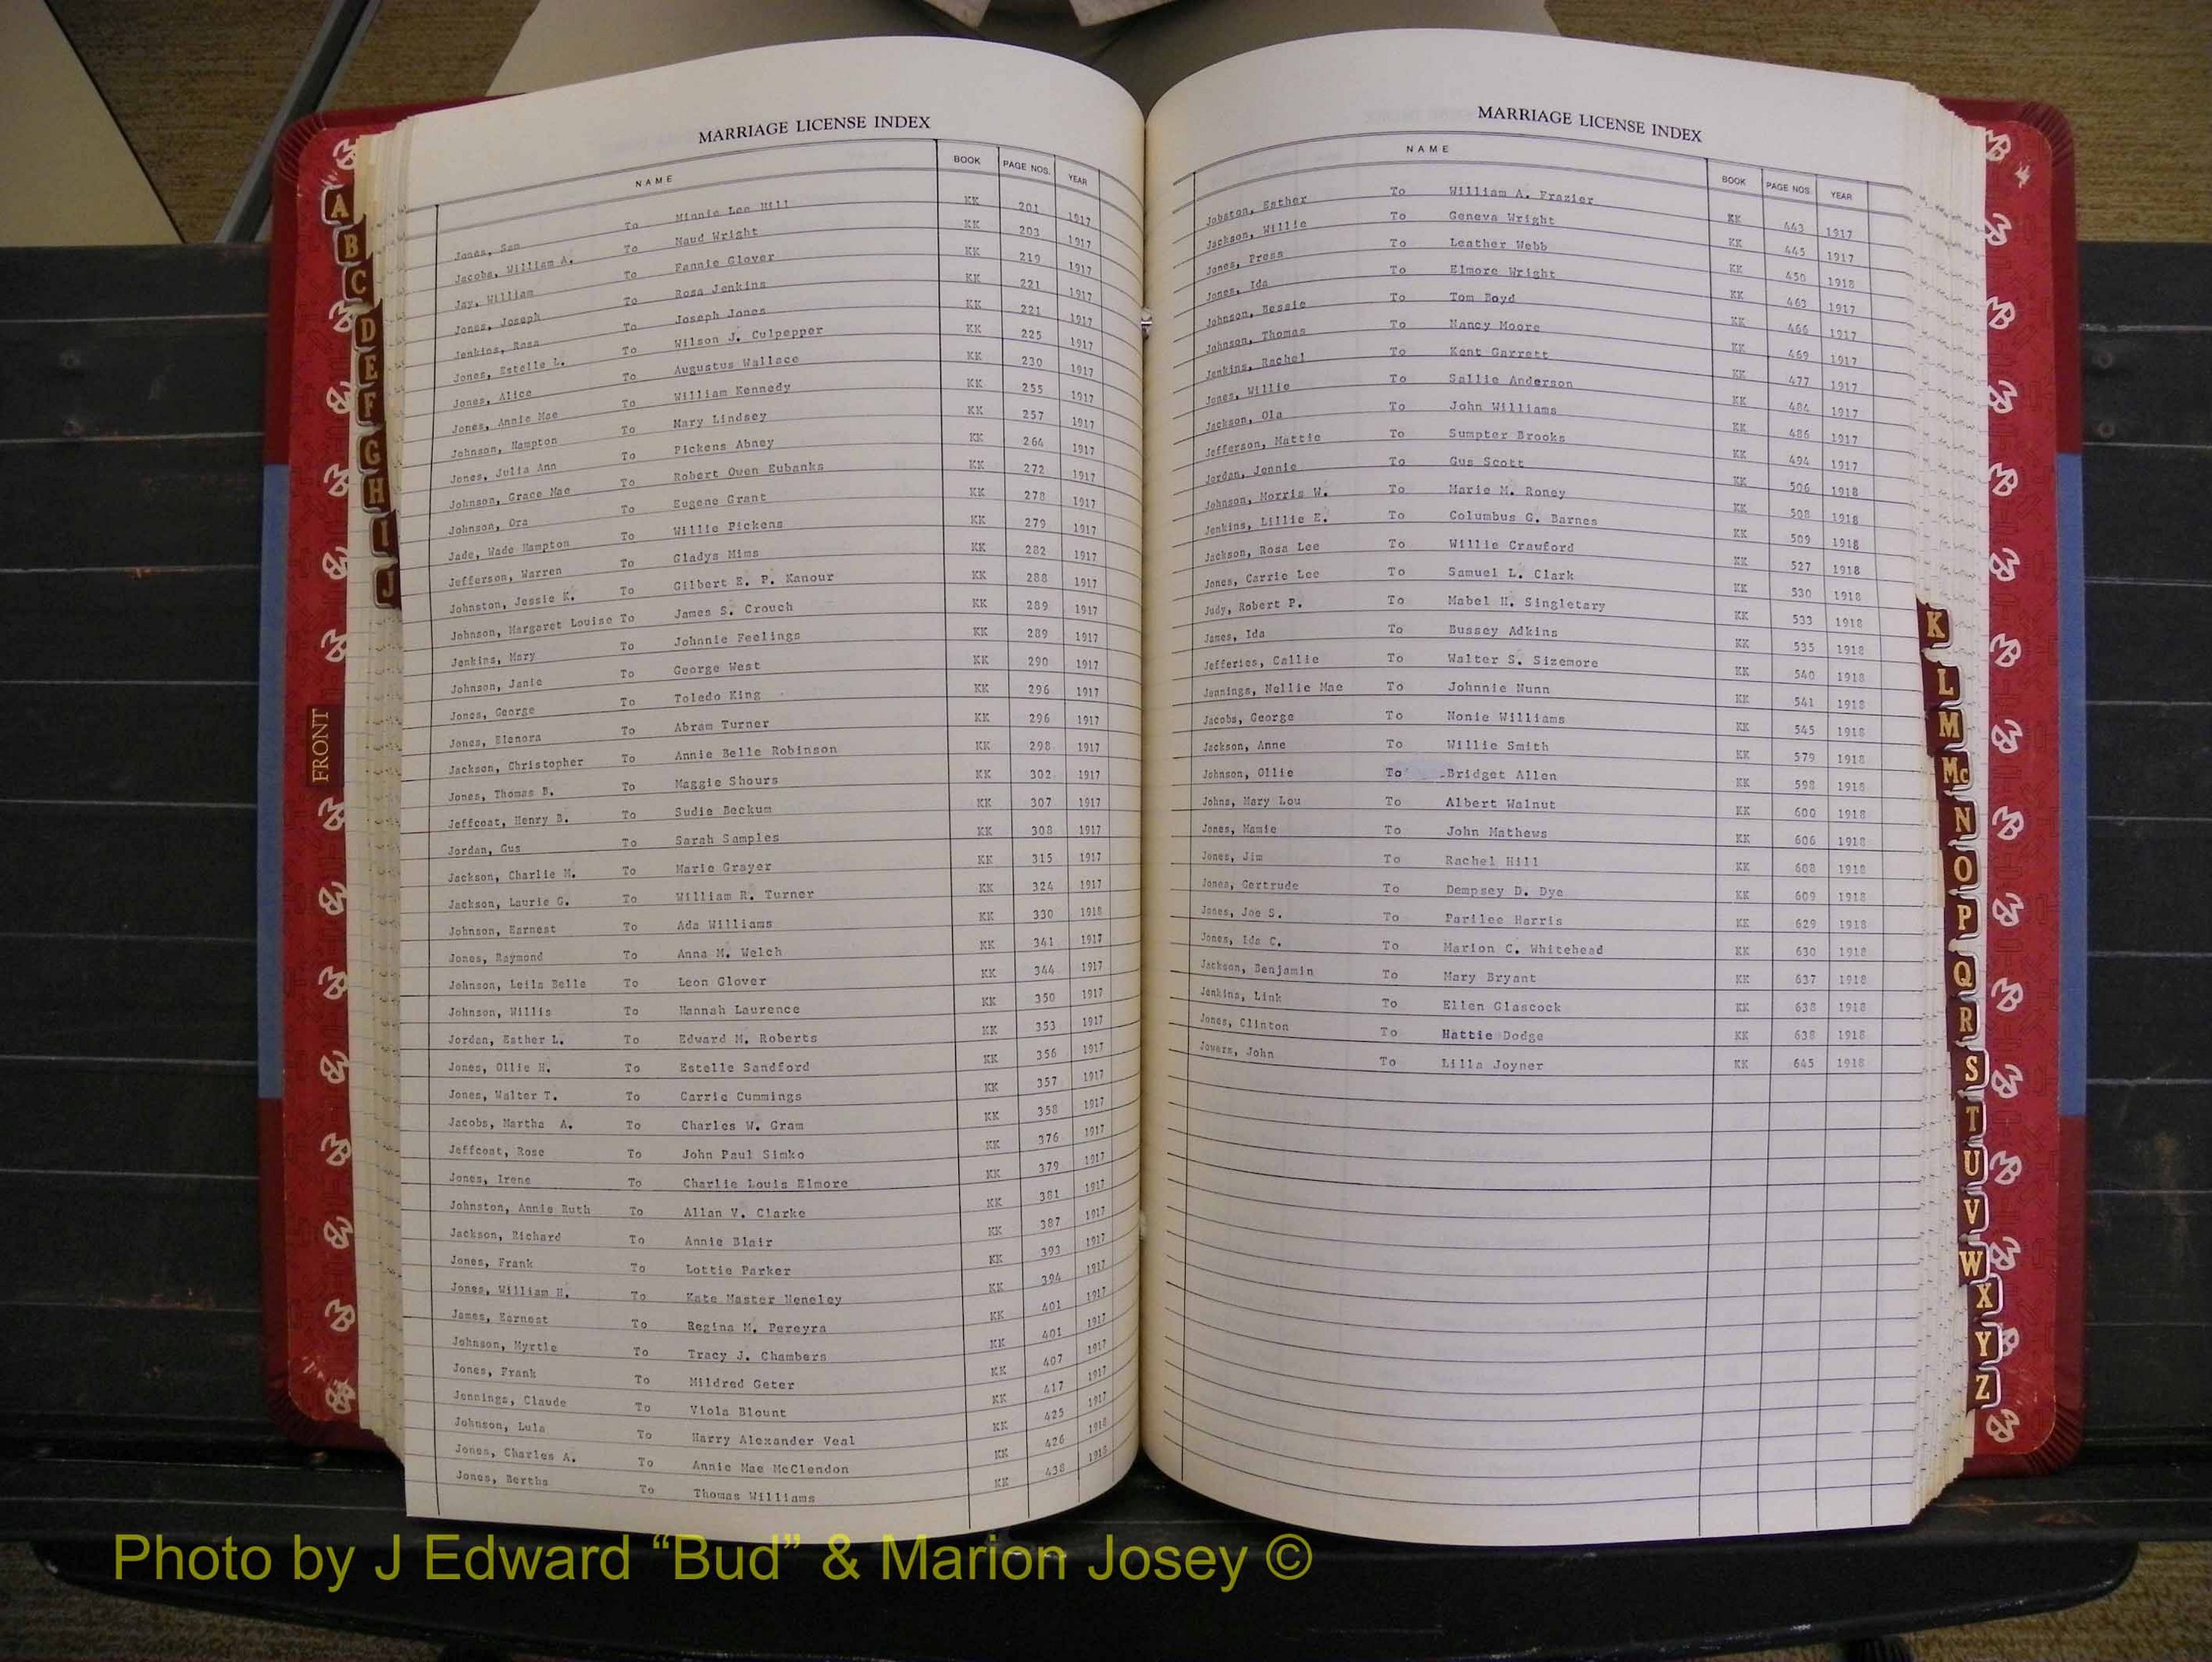 MARRIAGE LICENSE INDEX
NAME BOOK PAGE NOS. YEAR
Jones, Sam To Minnie Lee Hill KK 201 1917
Jacobs, William A. To Maud Wright KK 203 1917
Jay, William To Fannie Glover KK 219 1917
Jones, Joseph To Rosa Jenkins KK 221 1917
Jenkins, Rosa To Joseph Jones KK 221 1917
Jones, Estelle L. To Wilson J. Culpepper KK 225 1917
Jones, Alice To Augustus Wallace KK 230 1917
Jones, Annie Mae To William Kennedy KK 255 1917
Johnson, Hampton To Mary Lindsey KK 257 1917
Jones, Julia Ann To Pickens Abney KK 264 1917
Johnson, Grace Mae To Robert Owen Eubanks KK 272 1917
Johnson, Ora To Eugene Grant KK 278 1917
Jade, Wade Hampton To Willie Pickens KK 279 1917
Jefferson, Warren To Gladys Mims KK 282 1917
Johnston, Jessie K. To Gilbert E. P. Kanour KK 288 1917
Johnson, Margaret Louise To James S. Crouch KK 289 1917
Jenkins, Mary To Johnnie Feelings KK 289 1917
Johnson, Janie To George West KK 290 1917
Jones, George To Toledo King KK 296 1917
Jones, Elenora To Abram Turner KK 296 1917
Jackson, Christopher To Annie Belle Robinson KK 298 1917
Jones, Thomas B. To Maggie Shours KK 302 1917
Jeffcoat, Henry B. To Sudie Beckum KK 307 1917
Jordan, Gus To Sarah Samples KK 308 1917
Jackson, Charlie M. To Marie Grayer KK 315 1917
Jackson, Laurie G. To William R. Turner KK 324 1917
Johnson, Earnest To Ada Williams KK 330 1918
Jones, Raymond To Anna M. Welch KK 341 1917
Johnson, Leila Belle To Leon Glover KK 344 1917
Johnson, Willis To Hannah Laurence KK 350 1917
Jordan, Esther L. To Edward M. Roberts KK 353 1917
Jones, Ollie H. To Estelle Sandford KK 356 1917
Jones, Walter T. To Carrie Cummings KK 357 1917
Jacobs, Martha A. To Charles W. Gram KK 358 1917
Jeffcoat, Rose To John Paul Simko KK 376 1917
Jones, Irene To Charlie Louis Elmore KK 379 1917
Johnston, Annie Ruth To Allan V. Clarke KK 381 1917
Jackson, Richard To Annie Blair KK 387 1917
Jones, Frank To Lottie Parker KK 393 1917
Jones, William H. To Kate Master Heneley KK 394 1917
James, Earnest To Regina M. Pereyra KK 401 1917
Johnson, Myrtle To Tracy J. Chambers KK 401 1917
Jones, Frank To Mildred Geter KK 407 1917
Jennings, Claude To Viola Blount KK 417 1917
Johnson, Lula To Harry Alexander Veal KK 425 1917
Jones, Charles A. To Annie Mae McClendon KK 426 1918
Jones, Bertha To Thomas Williams KK 438 1918
MARRIAGE LICENSE INDEX
NAME BOOK PAGE NOS. YEAR
Jobston, Esther To William A. Frazier KK 443 1917
Jackson, Willie To Geneva Wright KK 445 1917
Jones, Press To Leather Webb KK 450 1918
Jones, Ida To Elmore Wright KK 463 1917
Johnson, Bessie To Tom Boyd KK 466 1917
Johnson, Thomas To Nancy Moore KK 469 1917
Jenkins, Rachel To Kent Garrett KK 477 1917
Jones, Willie To Sallie Anderson KK 484 1917
Jackson, Ola To John Williams KK 486 1917
Jefferson, Mattie To Sumpter Brooks KK 494 1917
Jordan, Jennie To Gus Scott KK 506 1918
Johnson, Morris W. To Marie M. Roney KK 508 1918
Jenkins, Lillie E. To Columbus G. Barnes KK 509 1918
Jackson, Rosa Lee To Willie Crawford KK 527 1918
Jones, Carrie Lee To Samuel L. Clark KK 530 1918
Judy, Robert P. To Mabel H. Singletary KK 533 1918
James, Ida To Bussey Adkins KK 535 1918
Jefferies, Callie To Walter S. Sizemore KK 540 1918
Jennings, Nellie Mae To Johnnie Nunn KK 541 1918
Jacobs, George To Nonie Williams KK 545 1918
Jackson, Anne To Willie Smith KK 579 1918
Johnson, Ollie To Bridget Allen KK 598 1918
Johns, Mary Lou To Albert Walnut KK 600 1918
Jones, Mamie To John Mathews KK 606 1918
Jones, Jim To Rachel Hill KK 608 1918
Jones, Gertrude To Dempsey D. Dye KK 609 1918
Jones, Joe S. To Parilee Harris KK 629 1918
Jones, Ida C. To Marion C. Whitehead KK 630 1918
Jackson, Benjamin To Mary Bryant KK 637 1918
Jenkins, Link To Ellen Glascock KK 638 1918
Jones, Clinton To Hattie Dodge KK 638 1918
Jowars, John To Lilla Joyner KK 645 1918
A
B
C
D
E
F
G
H
I
J
FRONT
K
L
M
Mc
N
O
P
Q
R
S
T
U
V
W
X
Y
Z
Photo by J Edward “Bud” & Marion Josey ©